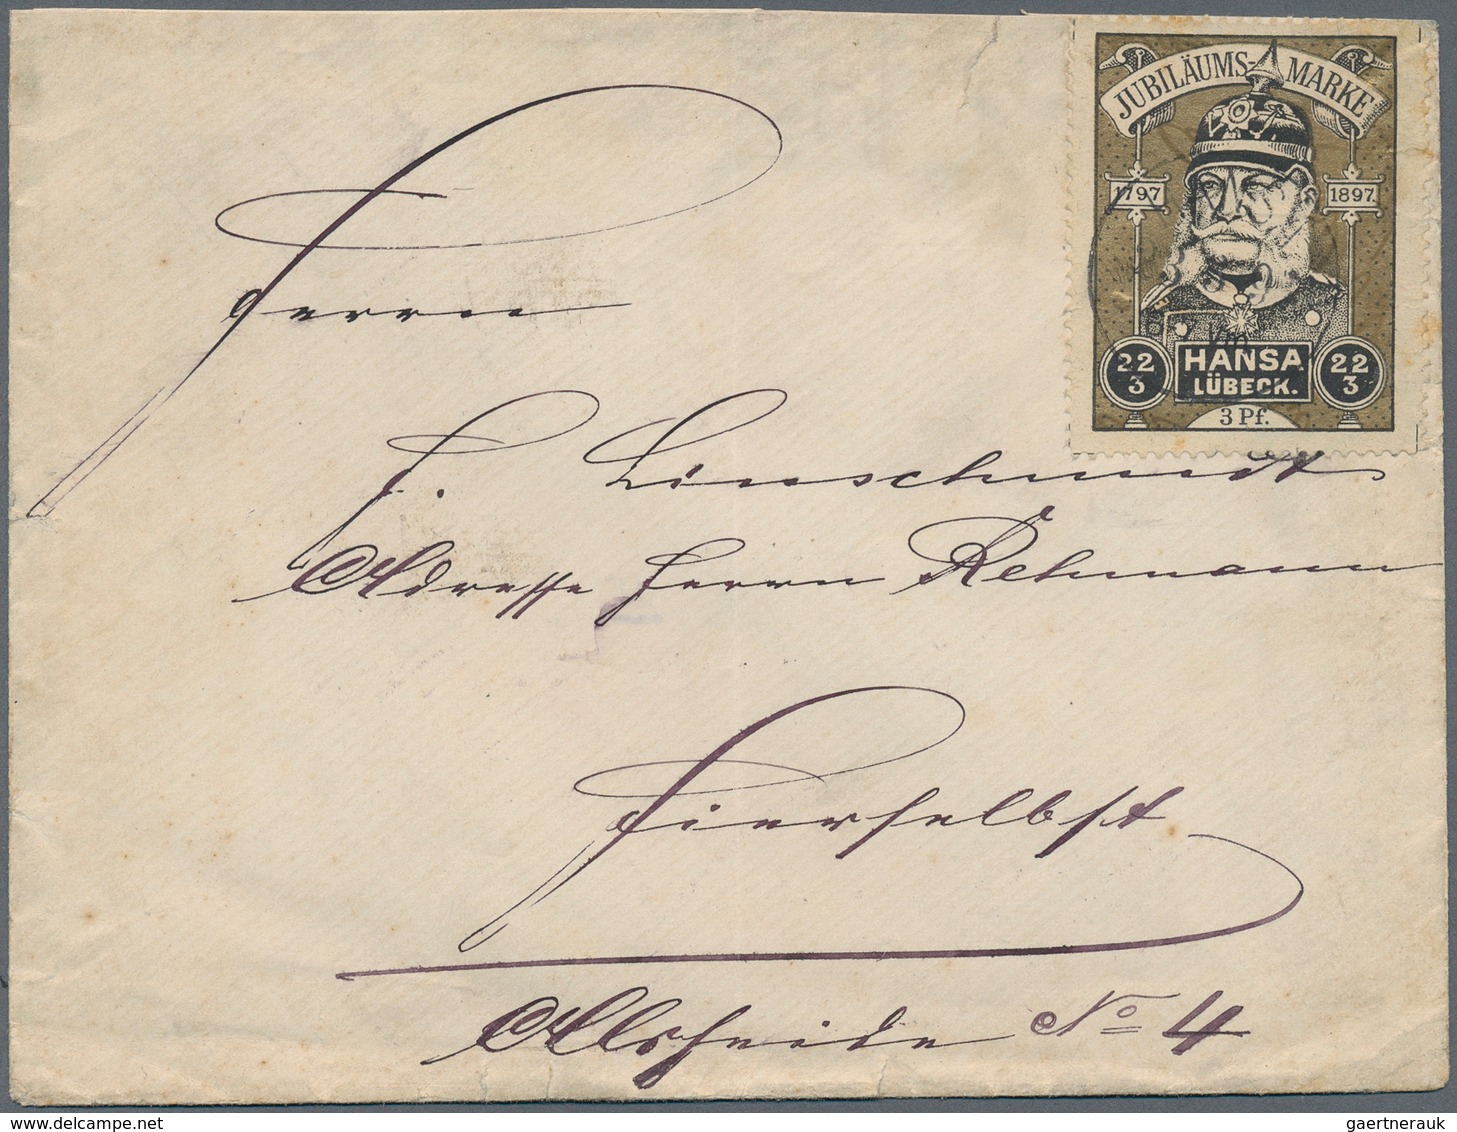 JUBILÄUMS-MARKE
1797 1897
HANSA
LÜBECK.
22 3 22 3
3 Pf.
Herrn
F. Linschmidt
Adresse Herrn Rehmann
Hierselbst
No 4
www.delcampe.net
gaertnerauk